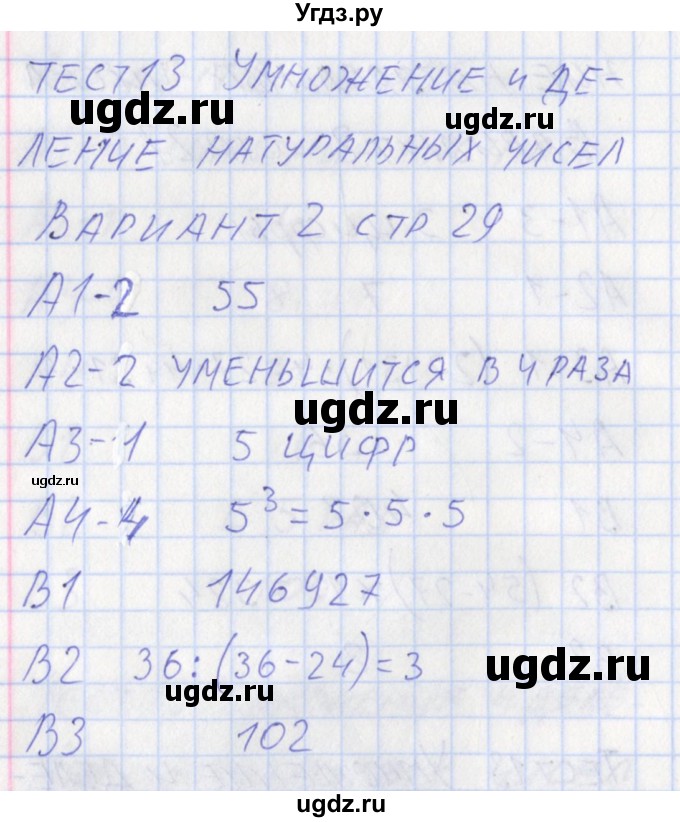 Угдз.ру
ТЕСТ 13 УМНОЖЕНИЕ И ДЕ-
ugdz.ru ugdz.ru
ЛЕНИЕ НАТУРАЛЬНЫХ ЧИСЕЛ
ВАРИАНТ 2 СТР 29
А1-2 55
А2-2 УМЕНЬШИТСЯ В 4 РАЗА
ugdz.ru
А3-1 5 ЦИФР
ugdz.ru
А4-4 5³ = 5·5·5
В1 146927
В2 36:(36-24)=3 ugdz.ru
ugdz.ru
В3 102
ugdz.ru